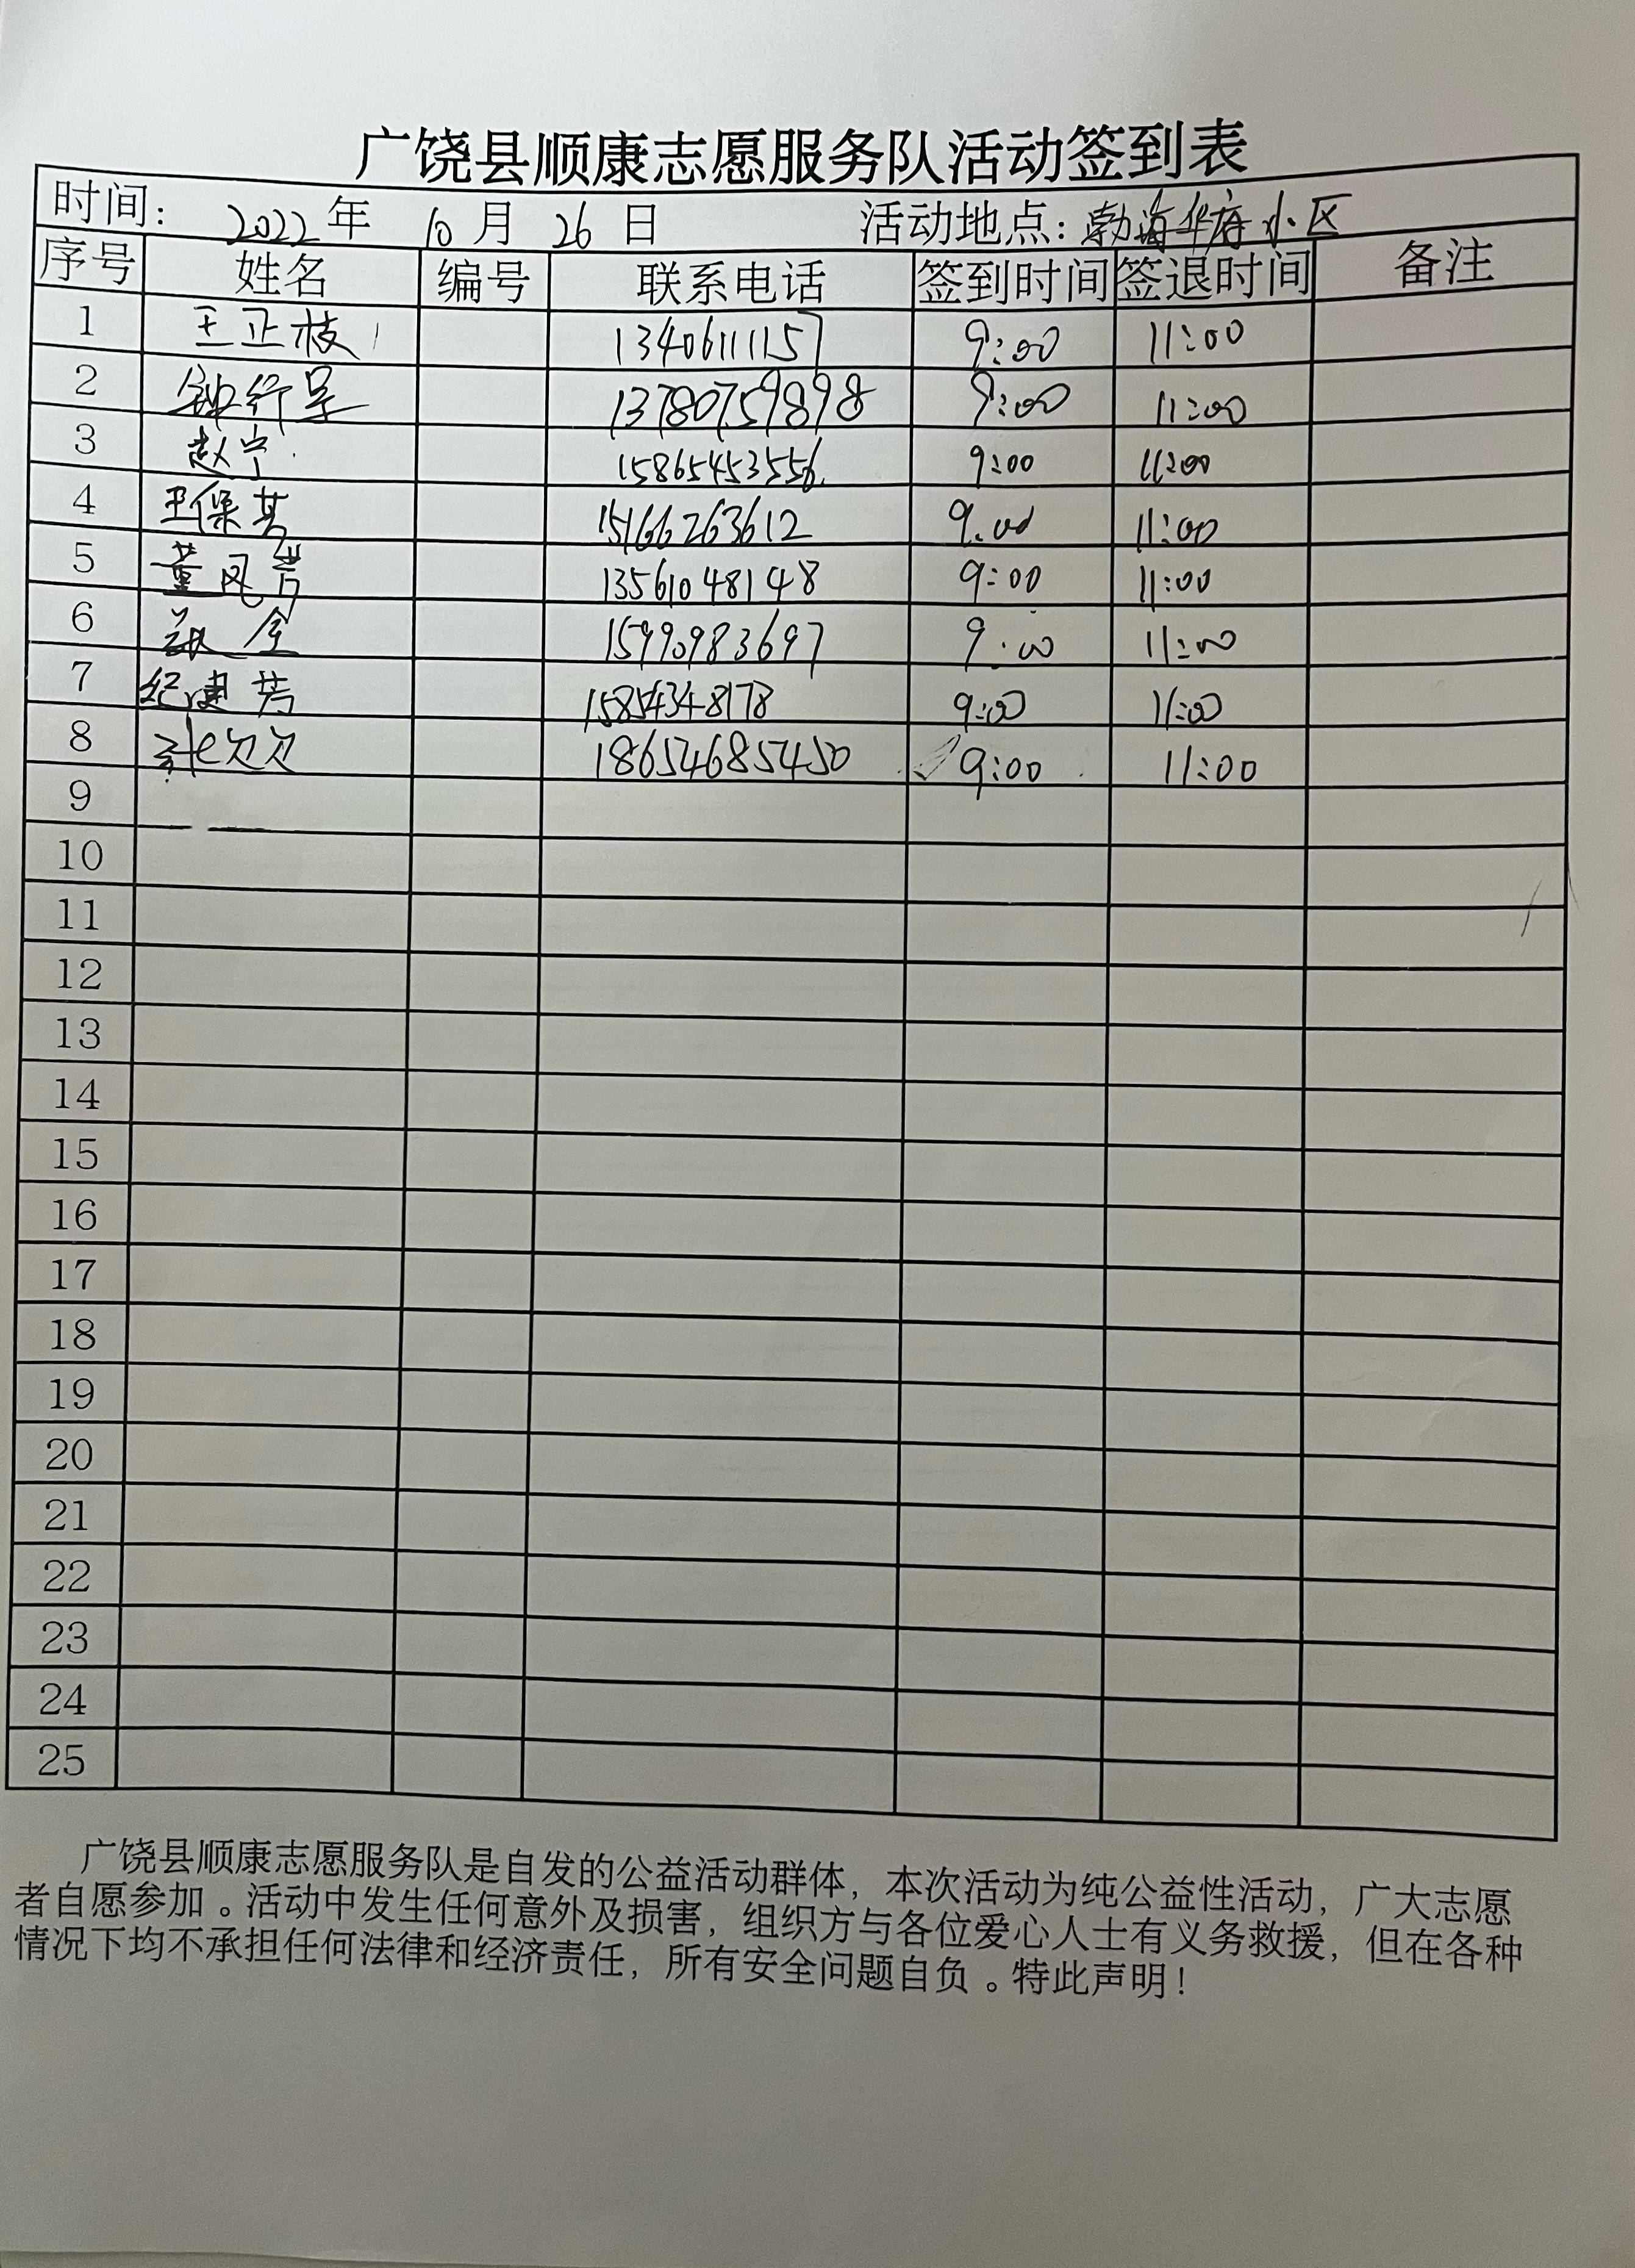 广饶县顺康志愿服务队活动签到表
时间: 2022 年 10 月 26 日 活动地点: 渤海华府小区
序号 姓名 编号 联系电话 签到时间 签退时间 备注
1 王正枝 13406111157 9:00 11:00
2 13780759898 9:00 11:00
3 赵宁 15865453556 9:00 11:00
4 王保其 15166263612 9:00 11:00
5 董凤岩 13561048148 9:00 11:00
6 15990983697 9:00 11:00
7 纪建芳 15854348178 9:00 11:00
8 18654685450 9:00 11:00
9
10
11
12
13
14
15
16
17
18
19
20
21
22
23
24
25
广饶县顺康志愿服务队是自发的公益活动群体，本次活动为纯公益性活动，广大志愿
者自愿参加。活动中发生任何意外及损害，组织方与各位爱心人士有义务救援，但在各种
情况下均不承担任何法律和经济责任，所有安全问题自负。特此声明！